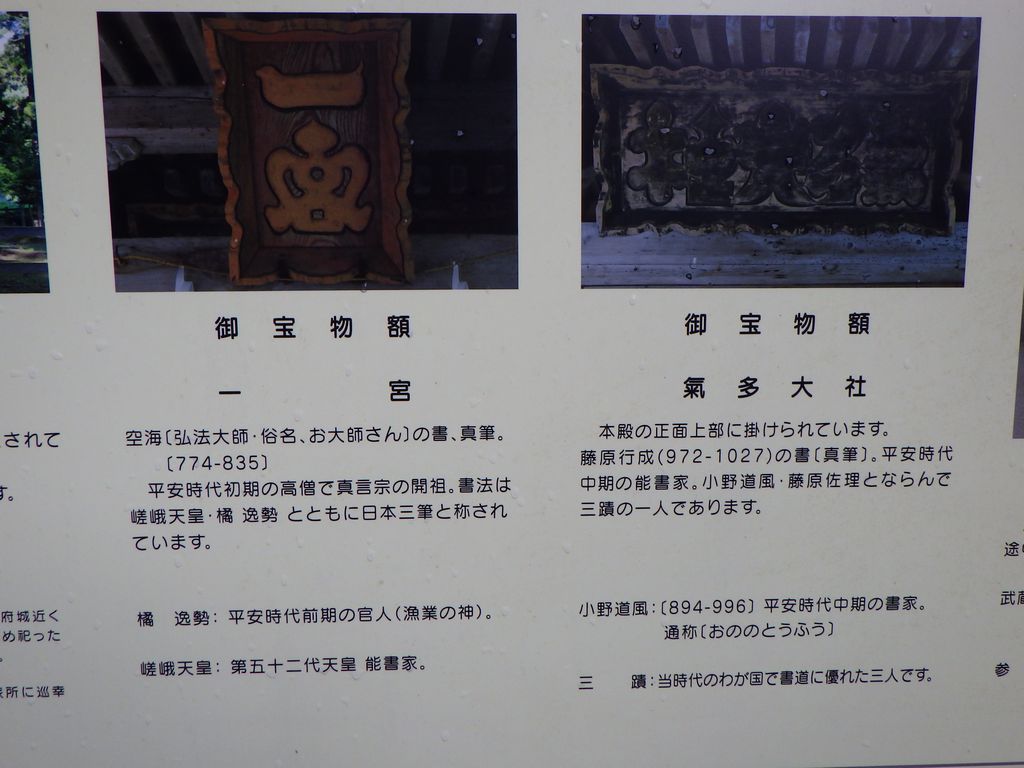 一
宮
御宝物額
一 宮
空海〔弘法大師・俗名、お大師さん〕の書、真筆。
〔774-835〕
平安時代初期の高僧で真言宗の開祖。書法は
嵯峨天皇・橘 逸勢 とともに日本三筆と称され
ています。
橘 逸勢: 平安時代前期の官人(漁業の神)。
嵯峨天皇: 第五十二代天皇 能書家。
御宝物額
氣多大社
本殿の正面上部に掛けられています。
藤原行成(972-1027)の書〔真筆〕。平安時代
中期の能書家。小野道風・藤原佐理とならんで
三蹟の一人であります。
小野道風:〔894-996〕平安時代中期の書家。
通称〔おののとうふう〕
三 蹟:当時代のわが国で書道に優れた三人です。
されて
す。
府城近く
め祀った
。
所に巡幸
途
武蔵
参